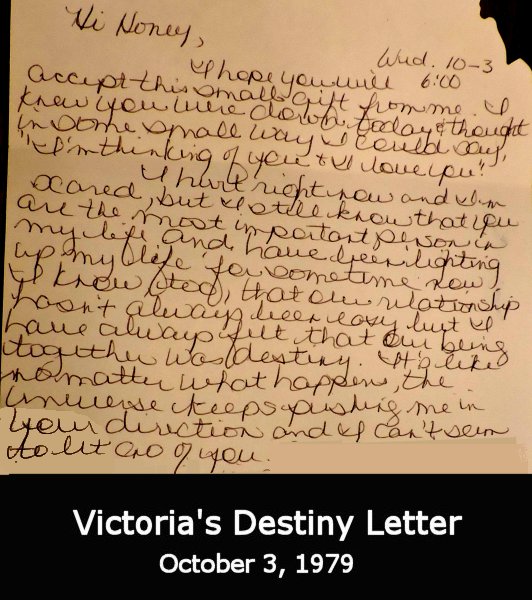 Hi Honey,
Wed. 10-3
6:00
I hope you will
accept this small gift from me. I
knew you were down today & thought
in some small way I could say,
"I'm thinking of you & I love you".
I hurt right now and I'm
scared, but I still know that you
are the most important person in
my life and have been lighting
up my life for sometime now.
I know, that our relationship
hasn't always been easy but I
have always felt that our being
together was destiny. It's like
no matter what happens, the
universe keeps pushing me in
your direction and I can't seem
to let of you.
Victoria's Destiny Letter
October 3, 1979